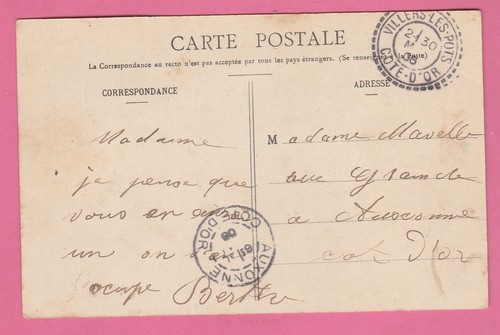 CARTE POSTALE
La Correspondance au recto n'est pas acceptée par tous les pays étrangers. (Se renseigner à la Poste)
CORRESPONDANCE
ADRESSE
VILLERS-LES-POTS
COTE-D'OR
Madame
je pense que
vous en
un on
ocupe Berthe
Madame Mavelle
rue Grande
à Auxonne
cote D'or
AUXONNE
COTE D'OR